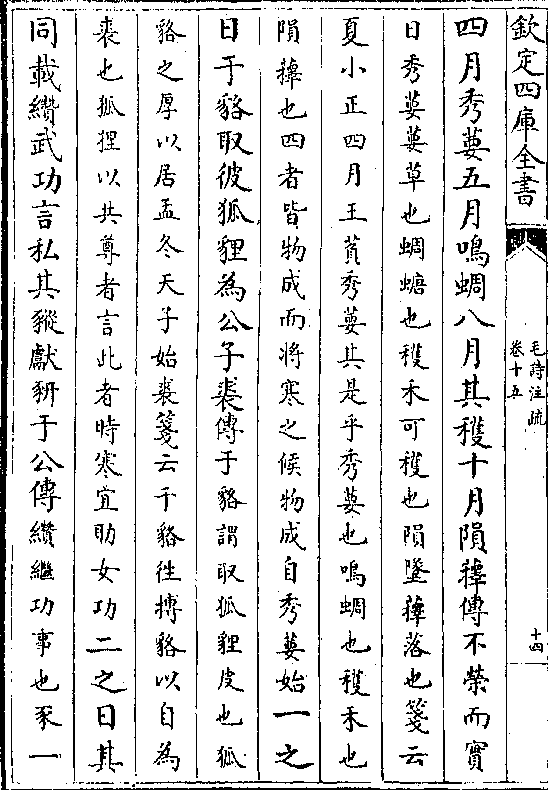 欽定四庫全書
毛詩注疏
卷十五
十四
四月秀葽五月鳴蜩八月其穫十月隕蘀傳不榮而實
曰秀葽葽草也蜩螗也穫禾可穫也隕墜蘀落也箋云
夏小正四月王萯秀葽其是乎秀葽也鳴蜩也穫禾也
隕蘀也四者皆物成而將寒之候物成自秀葽始一之
日于貉取彼狐貍為公子裘傳于貉謂取狐貍皮也狐
貉之厚以居孟冬天子始裘箋云于貉徃搏貉以自為
裘也狐狸以共尊者言此者時寒宜助女功二之日其
同載纘武功言私其豵獻豜于公傳纘繼功事也豕一